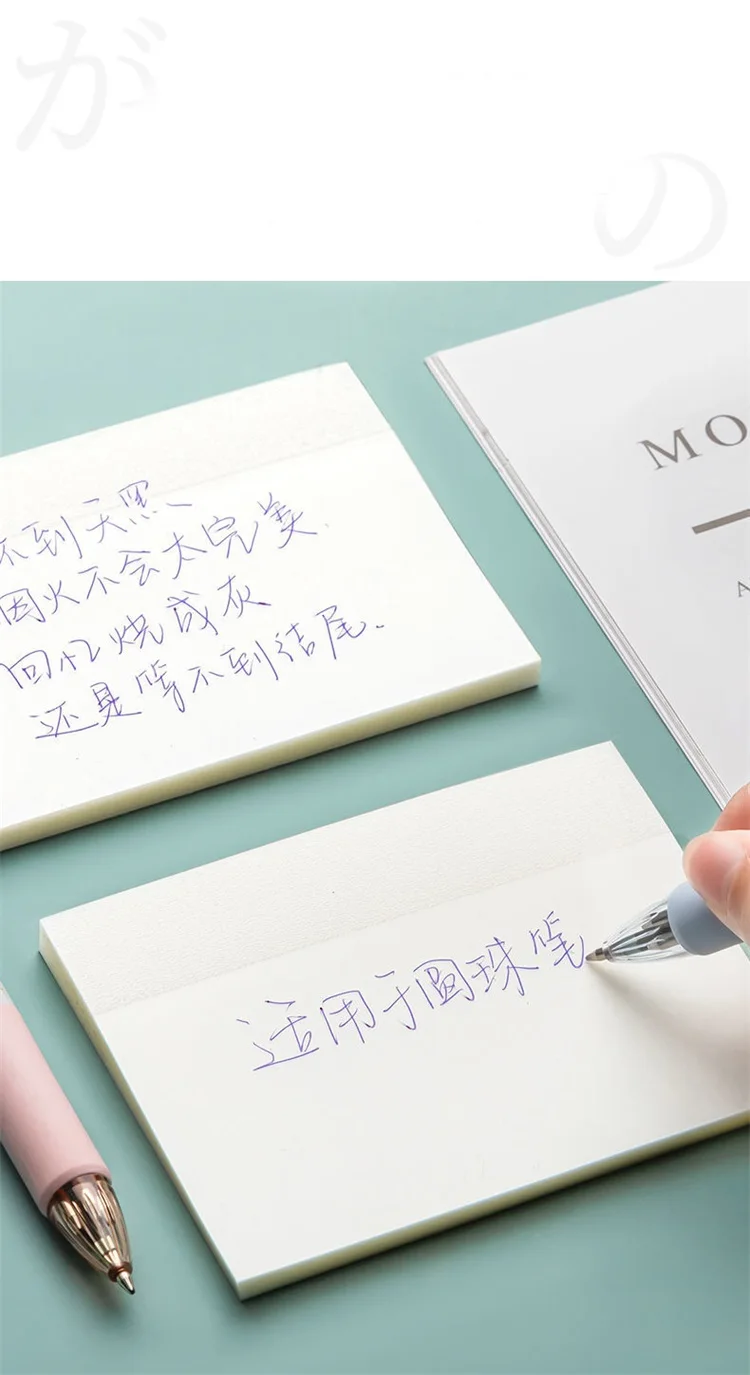 が
の
MO
A
不到天黑
烟火不会太完美
回忆烧成灰
还是等不到结尾.
适用于圆珠笔